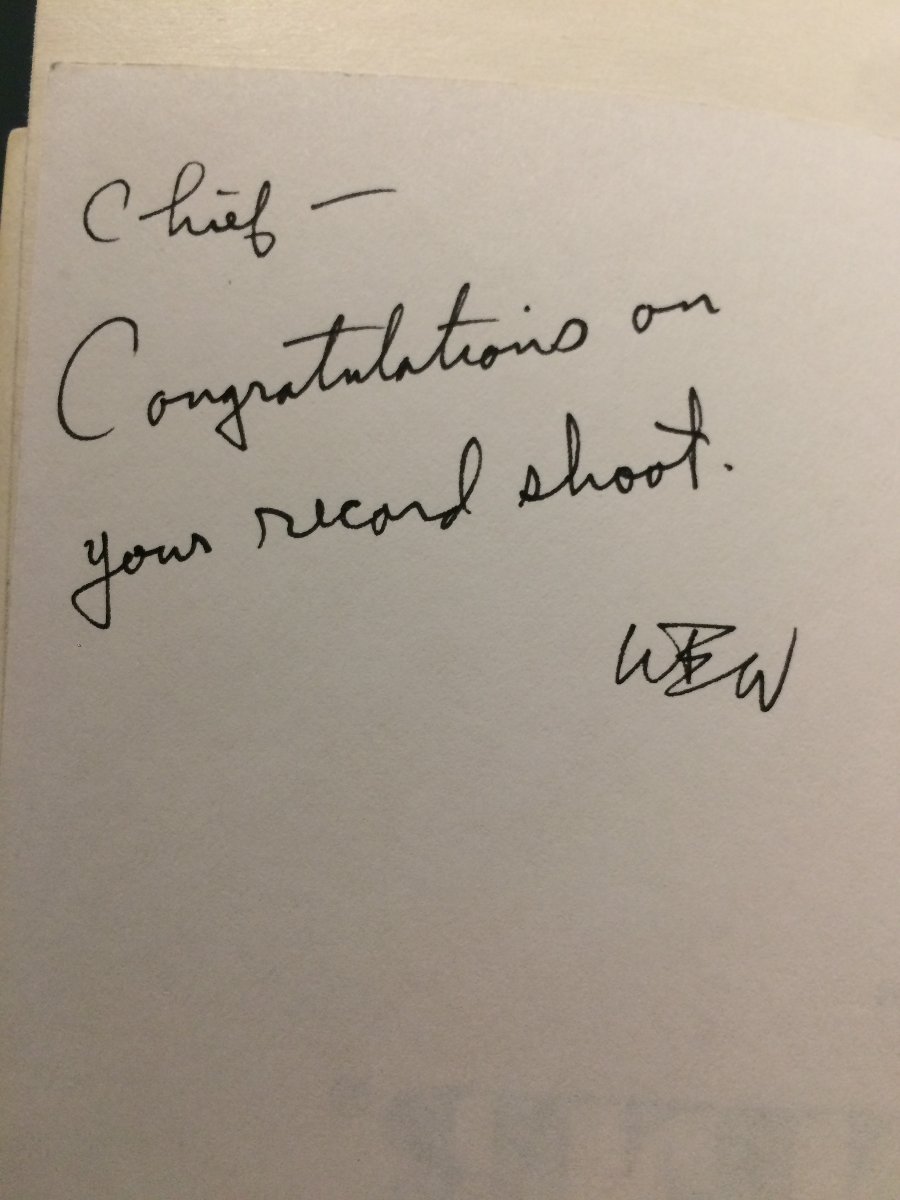 Chief —
Congratulations on
your record shoot.
WBW